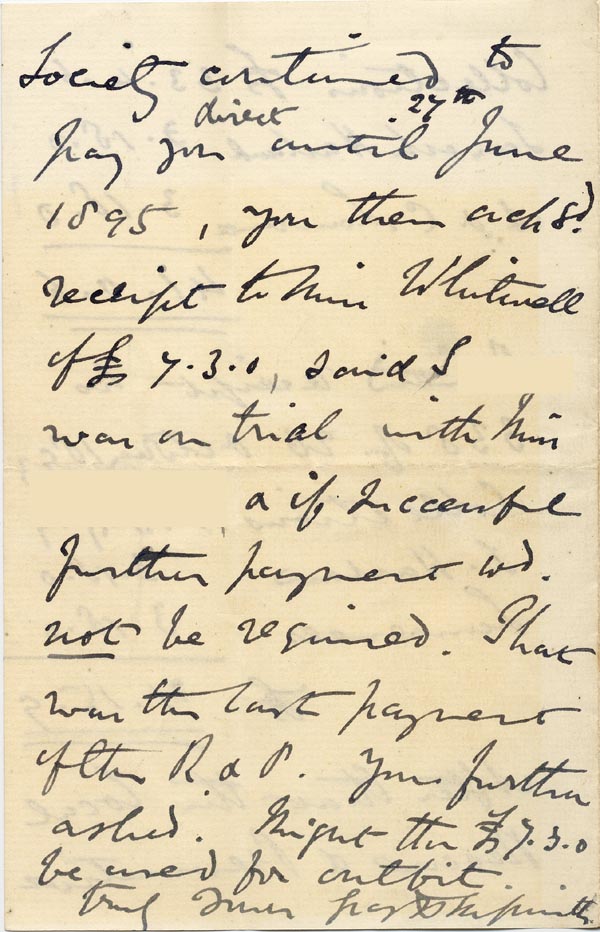 Society continued to
pay you direct until 27th June
1895, you then ackd.
receipt to Miss Whitwell
of £7.3.0, said S
was on trial with Miss
& if successful
further payment wd.
not be required. That
was the last payment
after R & P. You further
asked. Might the £7.3.0
be used for outfit
truly Yours